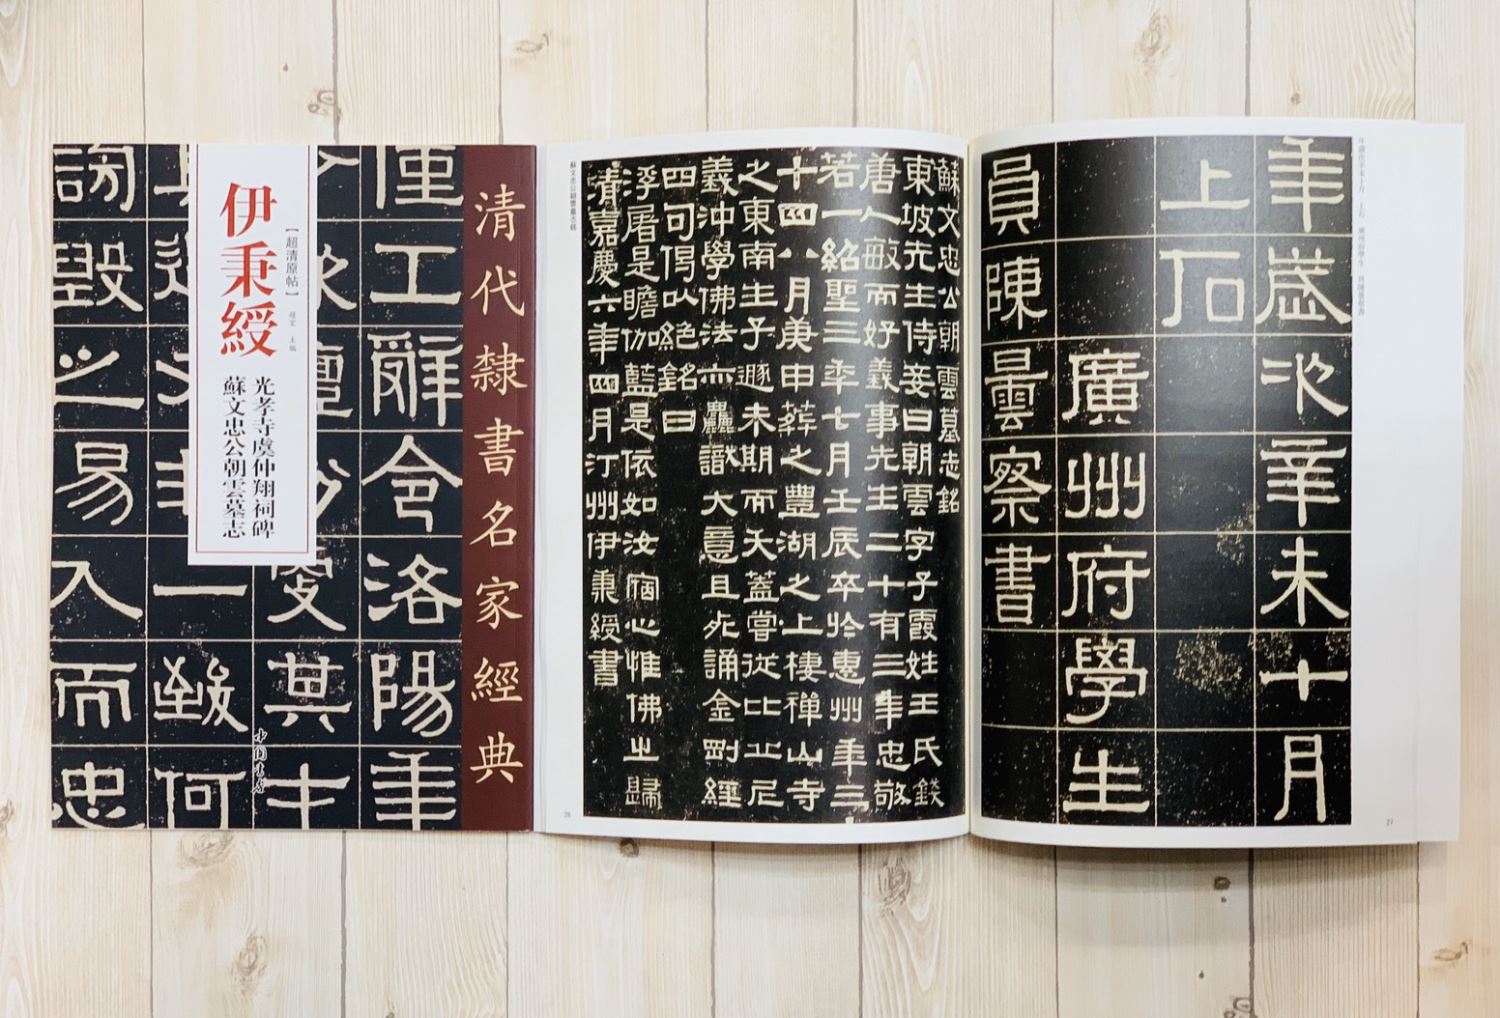 清代隸書名家經典
【超清原帖】
伊秉綬
光孝寺虞仲翔祠碑
蘇文忠公朝雲墓志
中國書店
僅工辭令洛陽年
其士
一致何
謗毀之易入而忠
蘇文忠公朝雲墓志銘
東坡先生侍妾曰朝雲字子霞姓王氏錢
唐人敏而好義事先生二十有三年忠敬
若一紹聖三年七月壬辰卒於惠州年三
十四八月庚申葬之豐湖之上棲禪山寺
之東南生子遯未期而夭蓋嘗從比丘尼
義沖學佛法亦麤識大意且死誦金剛經
四句偈以絕銘曰
浮屠是瞻伽藍是依如汝宿心惟佛之歸
清嘉慶六年四月汀州伊秉綬書
蘇文忠公朝雲墓志銘
26
年歲次辛未十月 上石 廣州府學生 員陳曇察書
年歲次辛未十月
上石
廣州府學生
員陳曇察書
27